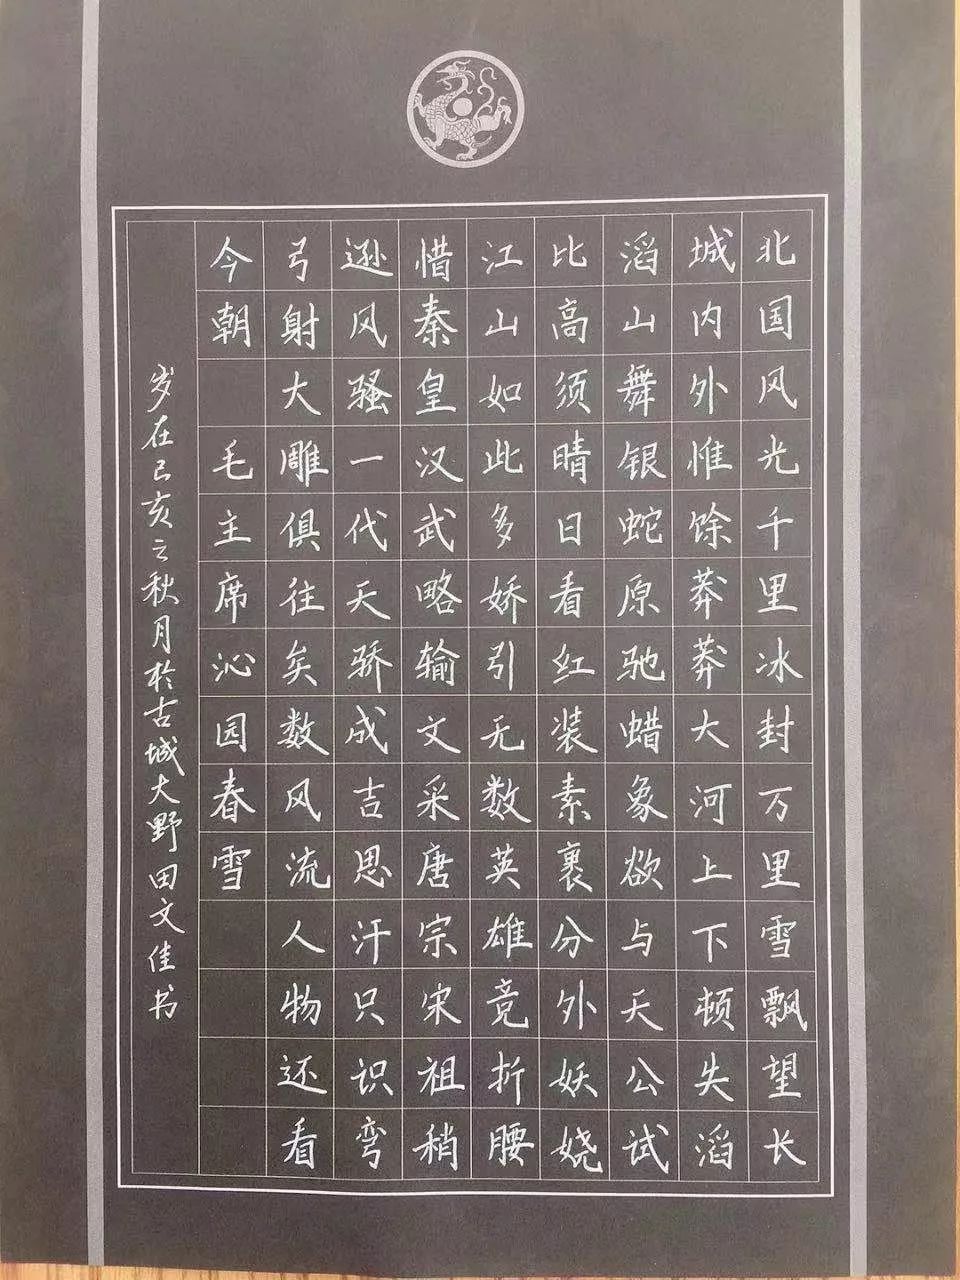 北国风光千里冰封万里雪飘望长
城内外惟馀莽莽大河上下顿失滔
滔山舞银蛇原驰蜡象欲与天公试
比高须晴日看红装素裹分外妖娆
江山如此多娇引无数英雄竞折腰
惜秦皇汉武略输文采唐宗宋祖稍
逊风骚一代天骄成吉思汗只识弯
弓射大雕俱往矣数风流人物还看
今朝 毛主席沁园春雪
岁在己亥之秋月於古城大野田文佳书